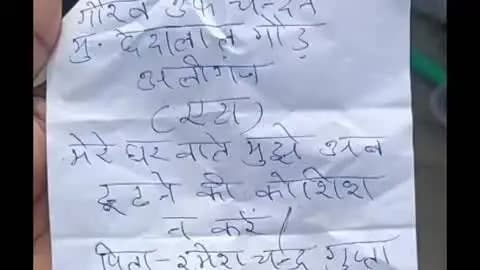 गौरव उर्फ चन्दन
मु. देदालाल गौड़
अलीगंज
(एटा)
मेरे घर वाले मुझे अब
ढूढने की कोशिश
न करें
पिता - रमेश चन्द्र गुप्ता